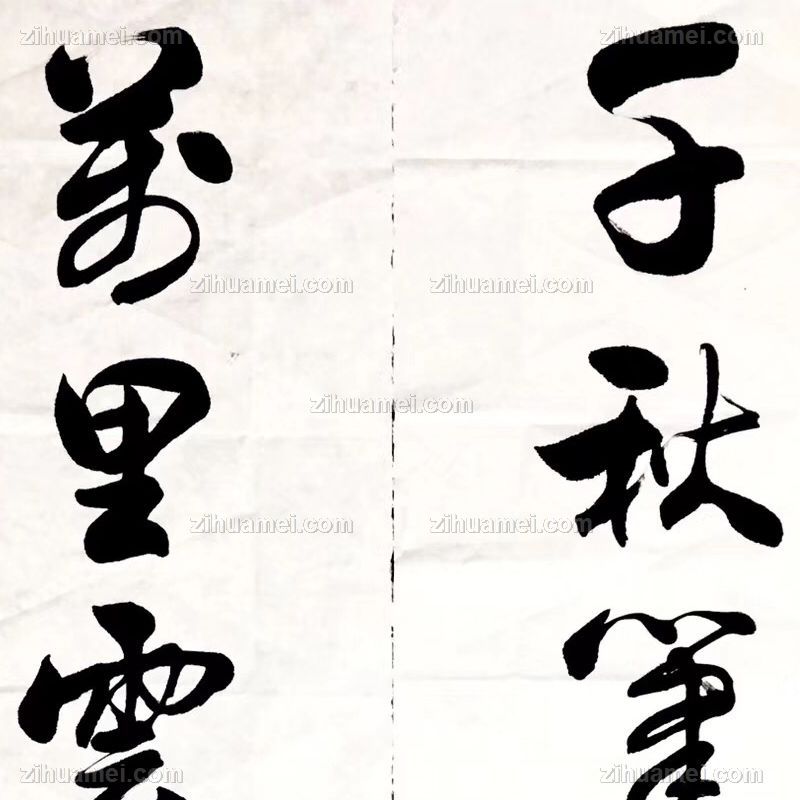 千秋筆
萬里雲
zihuamei.com
zihuamei.com
zihuamei.com
zihuamei.com
zihuamei.com
zihuamei.com
zihuamei.com
zihuamei.com
zihuamei.com